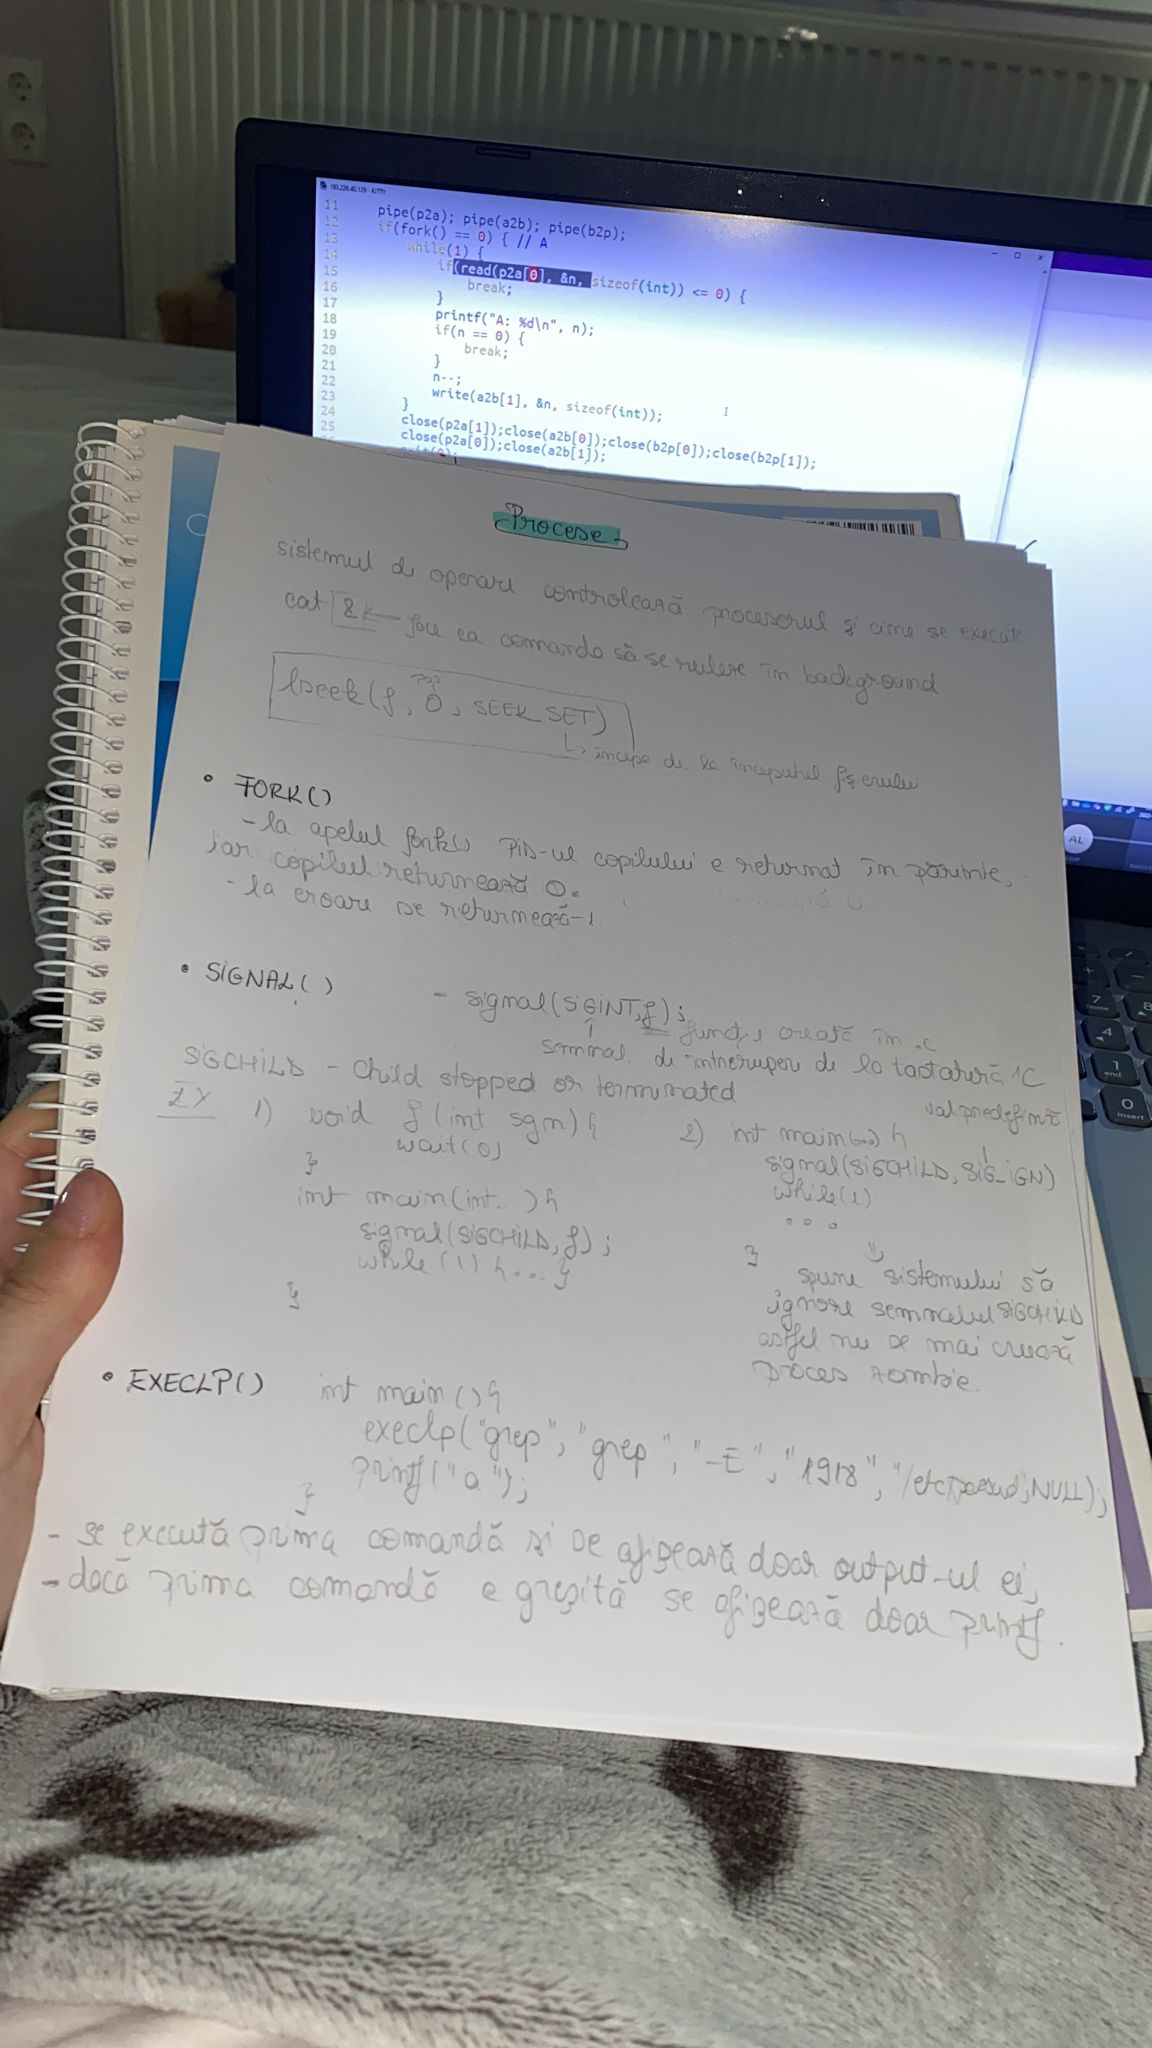 193.226.40.129 - KiTTY
11
12 pipe(p2a); pipe(a2b); pipe(b2p);
13 if(fork() == 0) { // A
14 while(1) {
15 if(read(p2a[0], &n, sizeof(int)) <= 0) {
16 break;
17 }
18 printf("A: %d\n", n);
19 if(n == 0) {
20 break;
21 }
22 n--;
23 write(a2b[1], &n, sizeof(int));
24 }
25 close(p2a[1]);close(a2b[0]);close(b2p[0]);close(b2p[1]);
close(p2a[0]);close(a2b[1]);
exit(0);
AL
Procese
sistemul de operare controlează procesorul și cine se execută
cat & ← face ca comanda să se ruleze în background
poz
lseek(f, 0, SEEK_SET)
↳ începe de la începutul fișierului
• FORK()
- la apelul fork() PID-ul copilului e returnat în părinte,
iar copilul returnează 0.
- la eroare se returnează -1.
• SIGNAL() - signal(SIGINT, f);
funcție creată în .c
semnal de întrerupere de la tastatură ^C
SIGCHILD - Child stopped or terminated
EX 1) void f(int sgn){
wait(0)
}
int main(int...){
signal(SIGCHILD, f);
while(1){...}
}
val predefinită
2) int main(...){
signal(SIGCHILD, SIG_IGN)
while(1)
...
}
spune sistemului să
ignore semnalul SIGCHILD
astfel nu se mai crează
proces zombie.
• EXECLP() int main(){
execlp("grep", "grep", "-E", "1918", "/etc/passwd", NULL);
printf("a");
}
- se execută prima comandă și se afișează doar output-ul ei,
- dacă prima comandă e greșită se afișează doar printf.